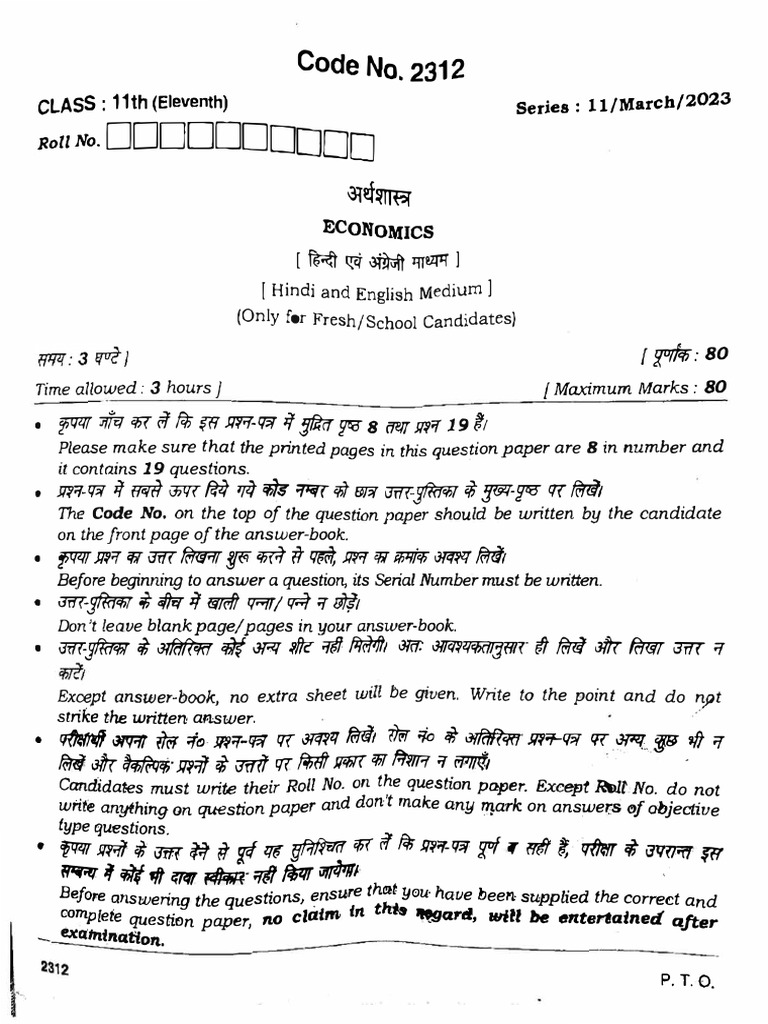 Code No. 2312
CLASS : 11th (Eleventh)
Series : 11/March/2023
Roll No.
अर्थशास्त्र
ECONOMICS
[ हिन्दी एवं अंग्रेजी माध्यम ]
[ Hindi and English Medium ]
(Only for Fresh/School Candidates)
समय : 3 घण्टे ]
[ पूर्णांक : 80
Time allowed : 3 hours ]
[ Maximum Marks : 80
• कृपया जाँच कर लें कि इस प्रश्न-पत्र में मुद्रित पृष्ठ 8 तथा प्रश्न 19 हैं।
Please make sure that the printed pages in this question paper are 8 in number and
it contains 19 questions.
• प्रश्न-पत्र में सबसे ऊपर दिये गये कोड नम्बर को छात्र उत्तर-पुस्तिका के मुख्य-पृष्ठ पर लिखें।
The Code No. on the top of the question paper should be written by the candidate
on the front page of the answer-book.
• कृपया प्रश्न का उत्तर लिखना शुरू करने से पहले, प्रश्न का क्रमांक अवश्य लिखें।
Before beginning to answer a question, its Serial Number must be written.
• उत्तर-पुस्तिका के बीच में खाली पन्ना/ पन्ने न छोड़ें।
Don't leave blank page/pages in your answer-book.
• उत्तर-पुस्तिका के अतिरिक्त कोई अन्य शीट नहीं मिलेगी। अतः आवश्यकतानुसार ही लिखें और लिखा उत्तर न
काटें।
Except answer-book, no extra sheet will be given. Write to the point and do not
strike the written answer.
• परीक्षार्थी अपना रोल नं० प्रश्न-पत्र पर अवश्य लिखें। रोल नं० के अतिरिक्त प्रश्न-पत्र पर अन्य कुछ भी न
लिखें और वैकल्पिक प्रश्नों के उत्तरों पर किसी प्रकार का निशान न लगाएँ।
Candidates must write their Roll No. on the question paper. Except Roll No. do not
write anything on question paper and don't make any mark on answers of objective
type questions.
• कृपया प्रश्नों के उत्तर देने से पूर्व यह सुनिश्चित कर लें कि प्रश्न-पत्र पूर्ण व सही है, परीक्षा के उपरान्त इस
सम्बन्ध में कोई भी दावा स्वीकार नहीं किया जायेगा।
Before answering the questions, ensure that you have been supplied the correct and
complete question paper, no claim in this regard, will be entertained after
examination.
2312
P. T. O.